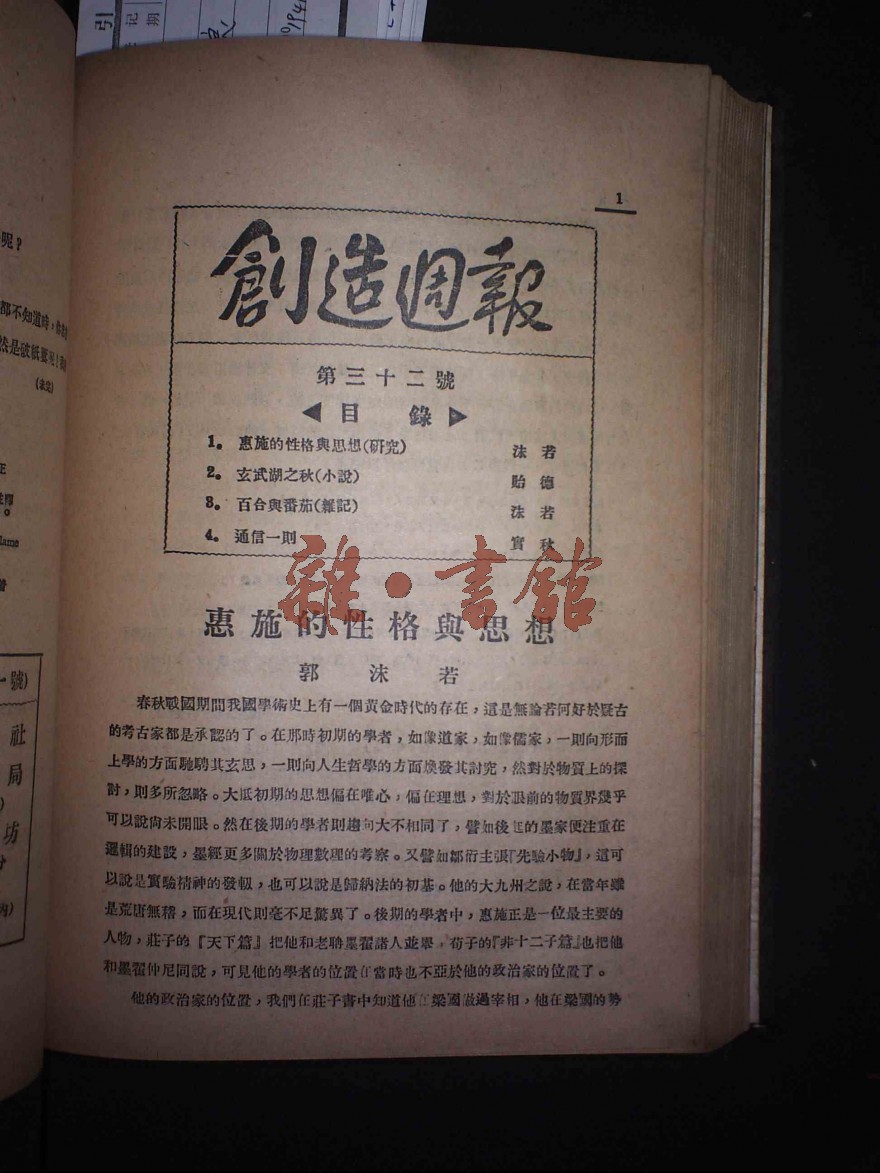 引
记
期
呢？
都不知道時，
然是破紙鳶呢！
(未完)
lame
號)
社
局
坊
1
創造週報
第三十二號
◀目 錄▶
1。 惠施的性格與思想(研究) 沫 若
2。 玄武湖之秋(小說) 貽 德
3。 百合與番茄(雜記) 沫 若
4。 通信一則 實 秋
雜·書館
惠施的性格與思想
郭 沫 若
春秋戰國期間我國學術史上有一個黃金時代的存在，這是無論若何好於疑古
的考古家都是承認的了。在那時初期的學者，如像道家，如像儒家，一則向形而
上學的方面馳騁其玄思，一則向人生哲學的方面煥發其討究，然對於物質上的探
討，則多所忽略。大抵初期的思想偏在唯心，偏在理想，對於眼前的物質界幾乎
可以說尙未開眼。然在後期的學者則趨向大不相同了，譬如後起的墨家便注重在
邏輯的建設，墨經更多關於物理數理的考察。又譬如鄒衍主張『先驗小物』，這可
以說是實驗精神的發軔，也可以說是歸納法的初基。他的大九州之說，在當年雖
是荒唐無稽，而在現代則毫不足驚異了。後期的學者中，惠施正是一位最主要的
人物，莊子的『天下篇』把他和老聃墨翟諸人並舉，荀子的『非十二子篇』也把他
和墨翟仲尼同說，可見他的學者的位置在當時也不亞於他的政治家的位置了。
他的政治家的位置，我們在莊子書中知道他在梁國做過宰相，他在梁國的勢